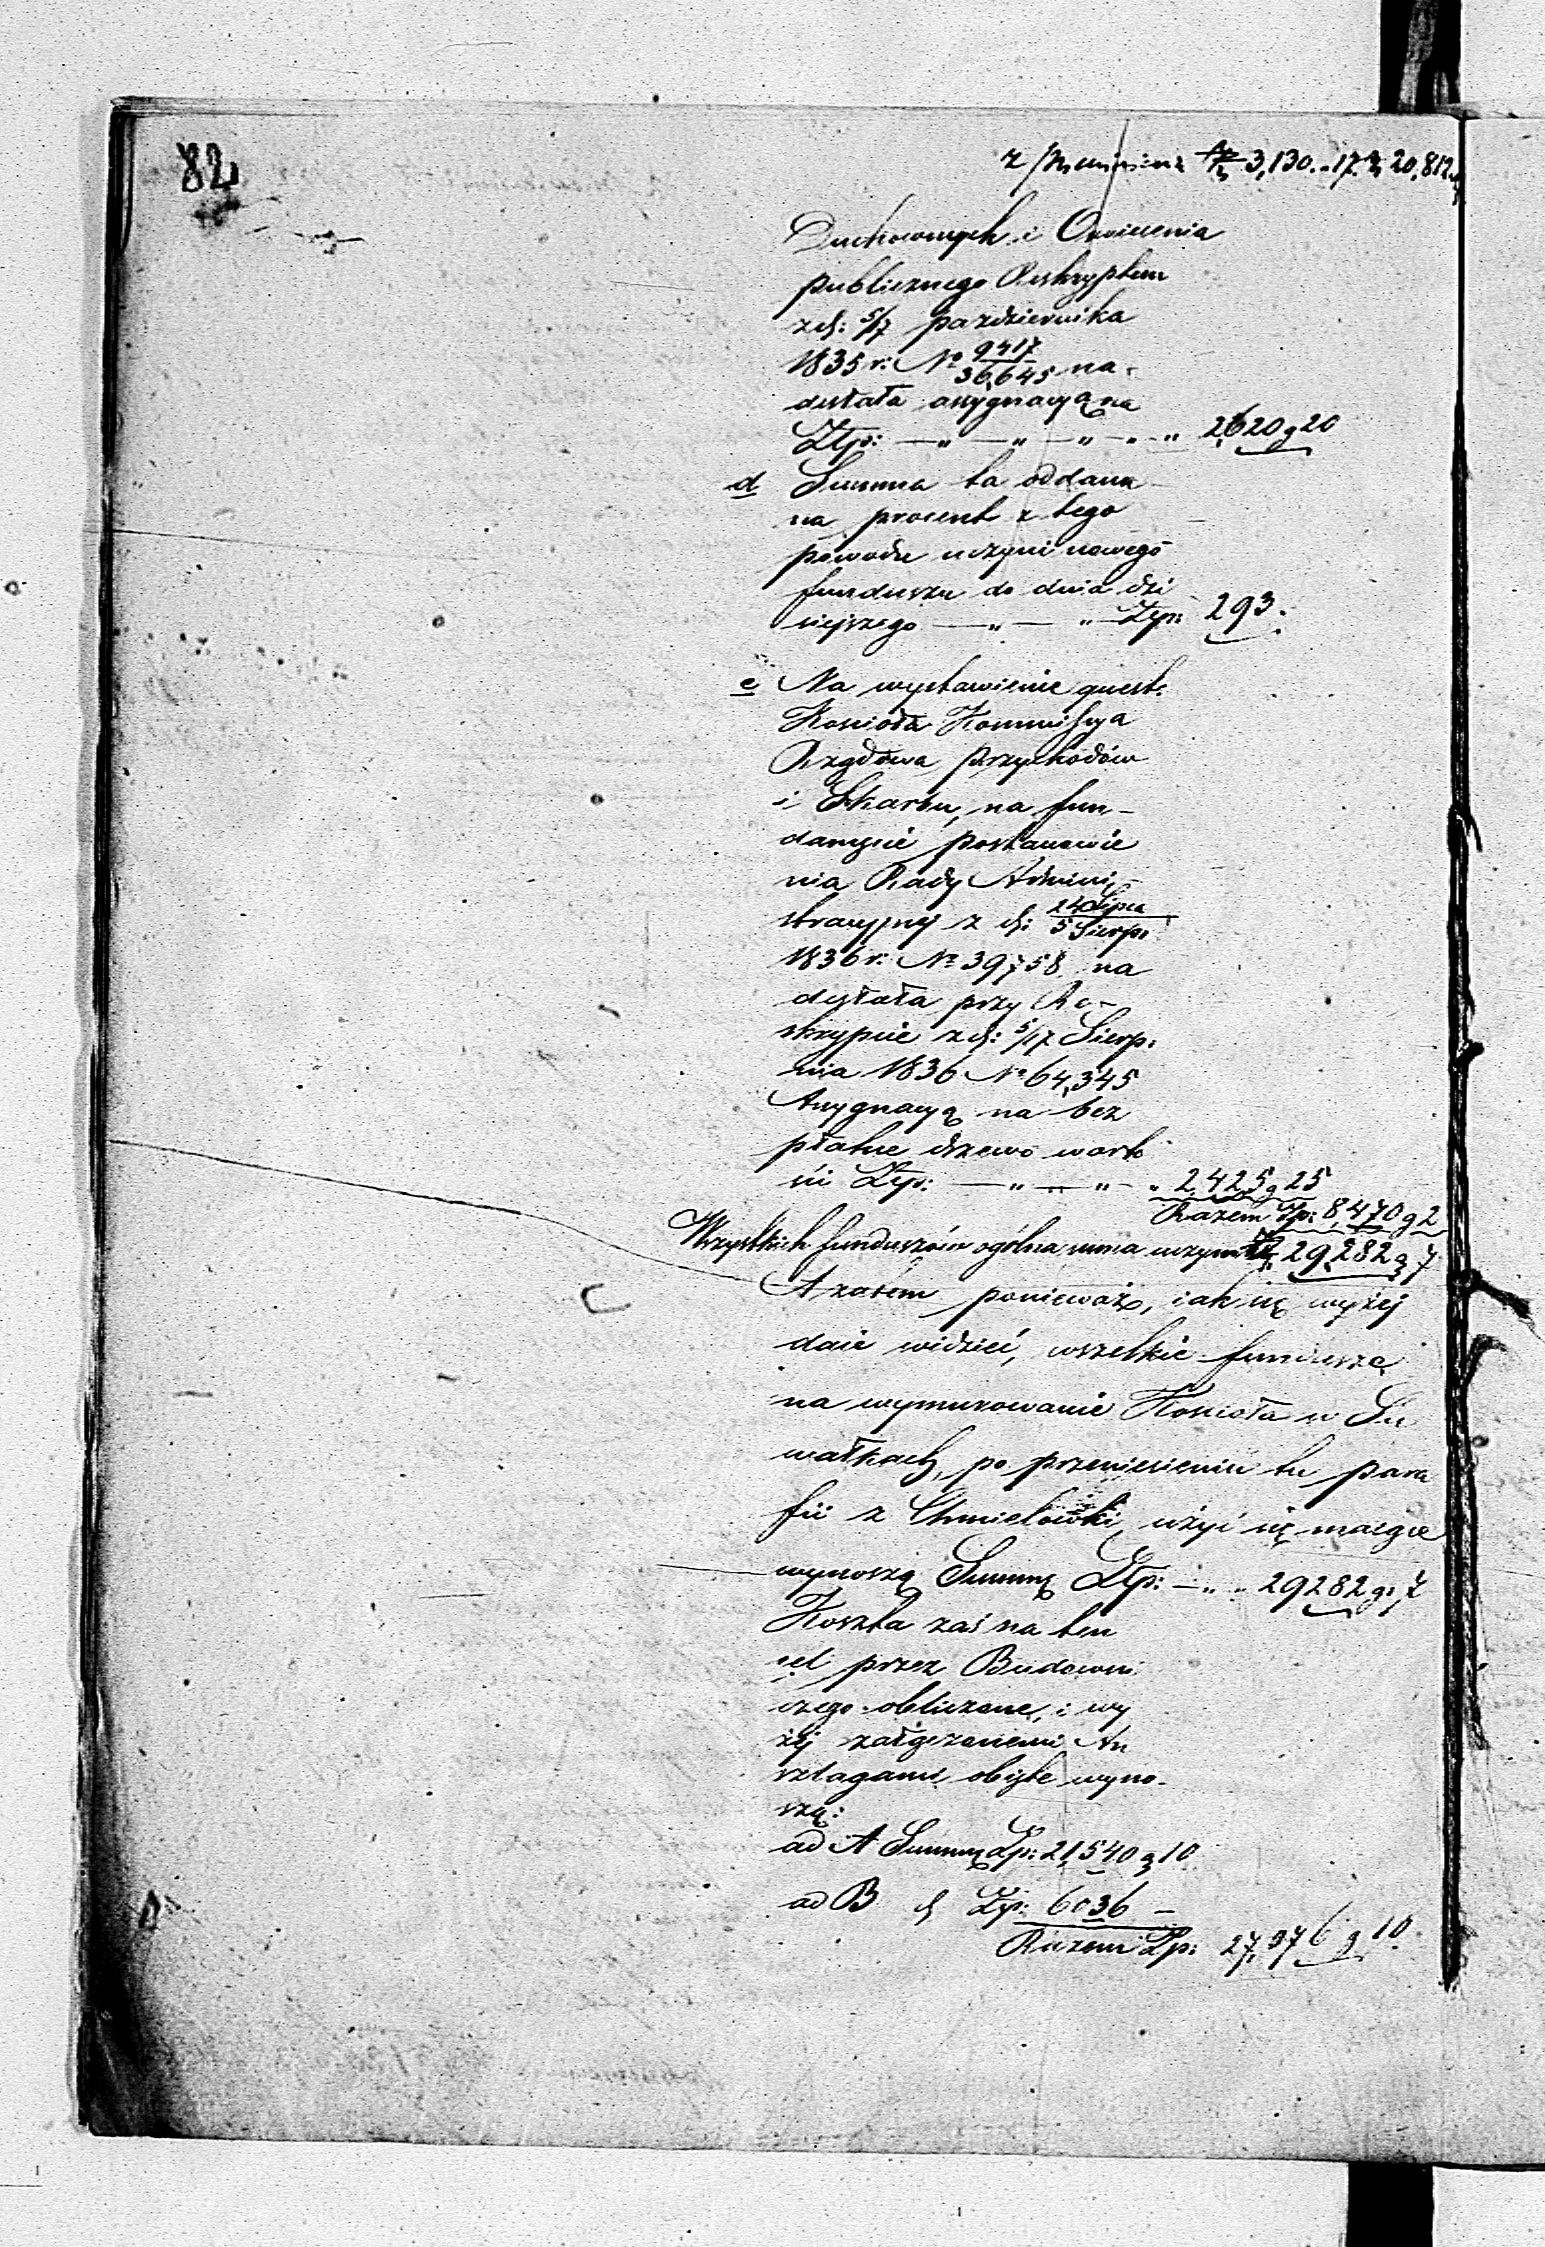 82
z Przeniesienia Złp 3,130..17. Złp 20,812.
Duchownych i Oswiecenia
publicznego Reskryptem
z d: 5/7 pazdziernika
1835 r: No 9417/36,645 na-
desłała assygnacyą na
Złp: —„—„—„—„ 2,620 g 20
d Summa ta oddana
na procent z tego
powodu uczyni nowego
funduszu do dnia dzi
siejszego —„— „—Złp: 293.
e Na wystawienie quest:
Kosioła Kommissya
Rządowa przychodów
i Skarbu, na fun-
damęcie postanowie
nia Rady Admini-
stracyjnej z d: 24 Lipca/5 Sierp:
1836 r: No 39758 na
desłała przy Re-
skrypcie z d: 5/17 Sierp:
nia 1836 No 64,345
Assygnacyą na bez
płatne drzewo warto
ści Złp: —„—„— „ 2,425 g 25
Razem Złp: 8,470 g 2
Wszystkich funduszów ogólna suma uczyni Złp: 29,282 g 7
A zatém ponieważ, iak się wyżej
daie widzieć, wszelkie fundusze
na wymurowanie Kosioła w Su
wałkach, po przeniesieniu tu para
fii z Chmielowki użyć się maiące
wynoszą Summę Złp: —„„ 29282 g: 7
Koszta zaś na ten
cel przez Budowni
czego obliczone, i wy
żéj załączonemi An
szlagami obięte wyno-
szą:
ad A Summę Złp: 21,540 g 10
ad B d Złp: 6036 —
Razem Złp: 27,576 g 10